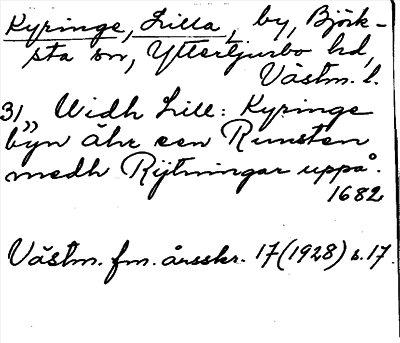 Kyringe, Lilla, by, Björk-
sta sn, Yttertjurbo hd,
Västm. l.
31 „ Widh Lill: Kyringe
byn ähr een Runsten
medh Rijtningar uppå.
1682
Västm. fm. årsskr. 17 (1928) s. 17.